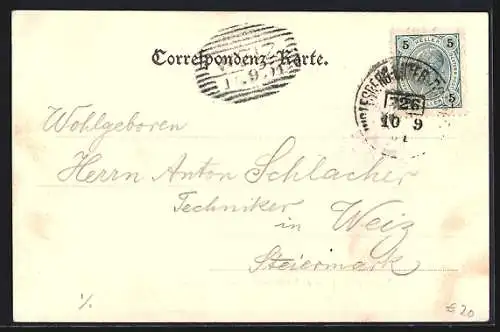 Correspondenz-Karte.
WEIZ
HELLER
5 5
5 5
726
10 9
Wohlgeboren
Herrn Anton Schlacher
Techniker
in Weiz
Steiermark
1/.
€ 20